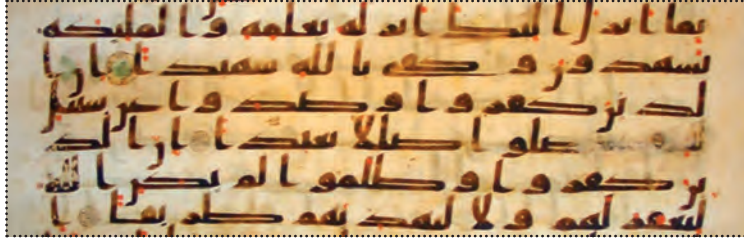 بما انزل اليك انزله بعلمه والملئكه
يشهدون وكفى بالله شهيدا ان ا
لذين كفروا وصدوا عن سبيل
ضلوا ضللا بعيدا ان الذ
ين كفروا وظلموا لم يكن الله
ليغفر لهم ولا ليهديهم طريقا ا